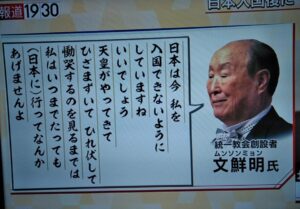 報道1930
日本入国後に
日本は今 私を
入国できないように
していますね
いいでしょう
天皇がやってきて
ひざまずいて ひれ伏して
慟哭するのを見るまでは
私はいつまでたっても
(日本に)行ってなんか
あげませんよ
統一教会創設者
ムンソンミョン
文鮮明氏